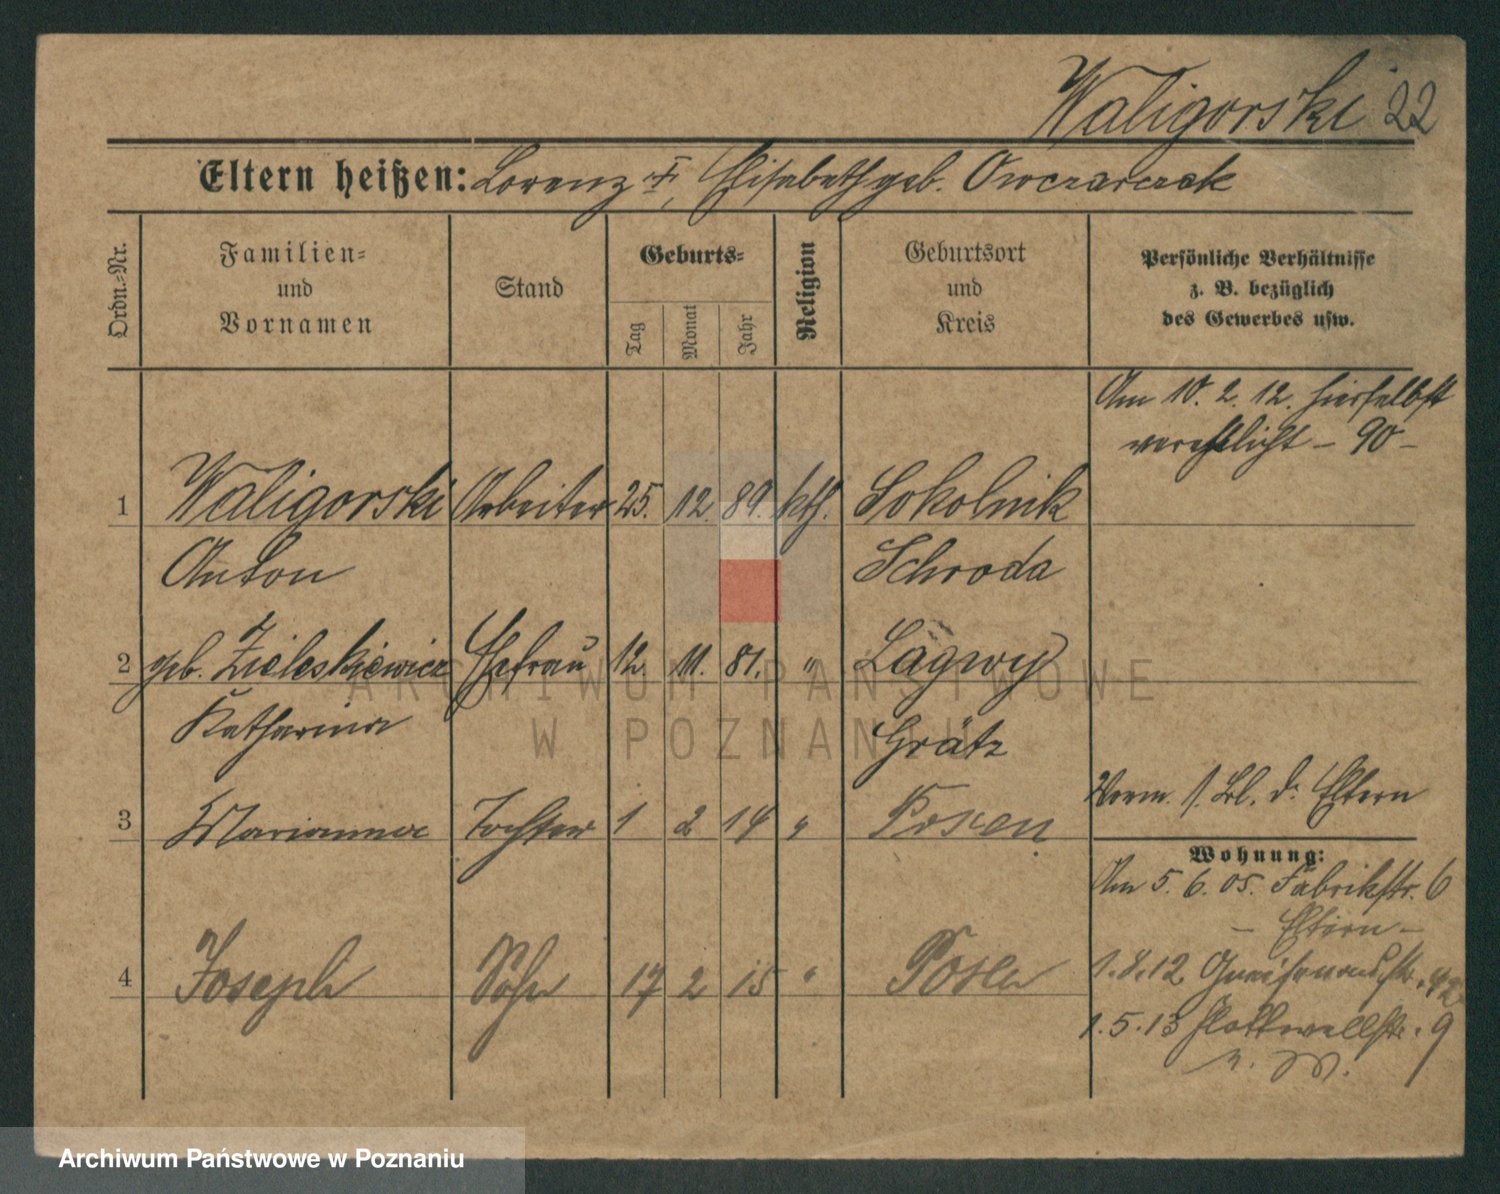 Waligorski 22
Eltern heißen: Lorenz †, Elisabeth geb. Owczarczak
Ordn.-Nr.
Familien-
und
Vornamen
Stand
Geburts-
Tag
Monat
Jahr
Religion
Geburtsort
und
Kreis
Persönliche Verhältnisse
z. B. bezüglich
des Gewerbes usw.
Am 10. 2. 12. hierselbst
verehelicht – 90 –
1 Waligorski Arbeiter 25. 12. 89. kth. Sokolnik
Anton Schroda
2 geb. Zieleskiewicz Ehefrau 12. 11. 81. " Lagwy
Katharina Grätz
3 Marianna Tochter 1 2 14 " Posen
Verm. f. Bl. d. Eltern
Wohnung:
Am 5. 6. 05. Fabrikstr. 6
– Eltern –
4 Joseph Sohn 17 2 15 " Posen
1.8.12 Gneisenaustr. 42
1.5.13 Flottwellstr. 9
ARCHIWUM PAŃSTWOWE
W POZNANIU
Archiwum Państwowe w Poznaniu